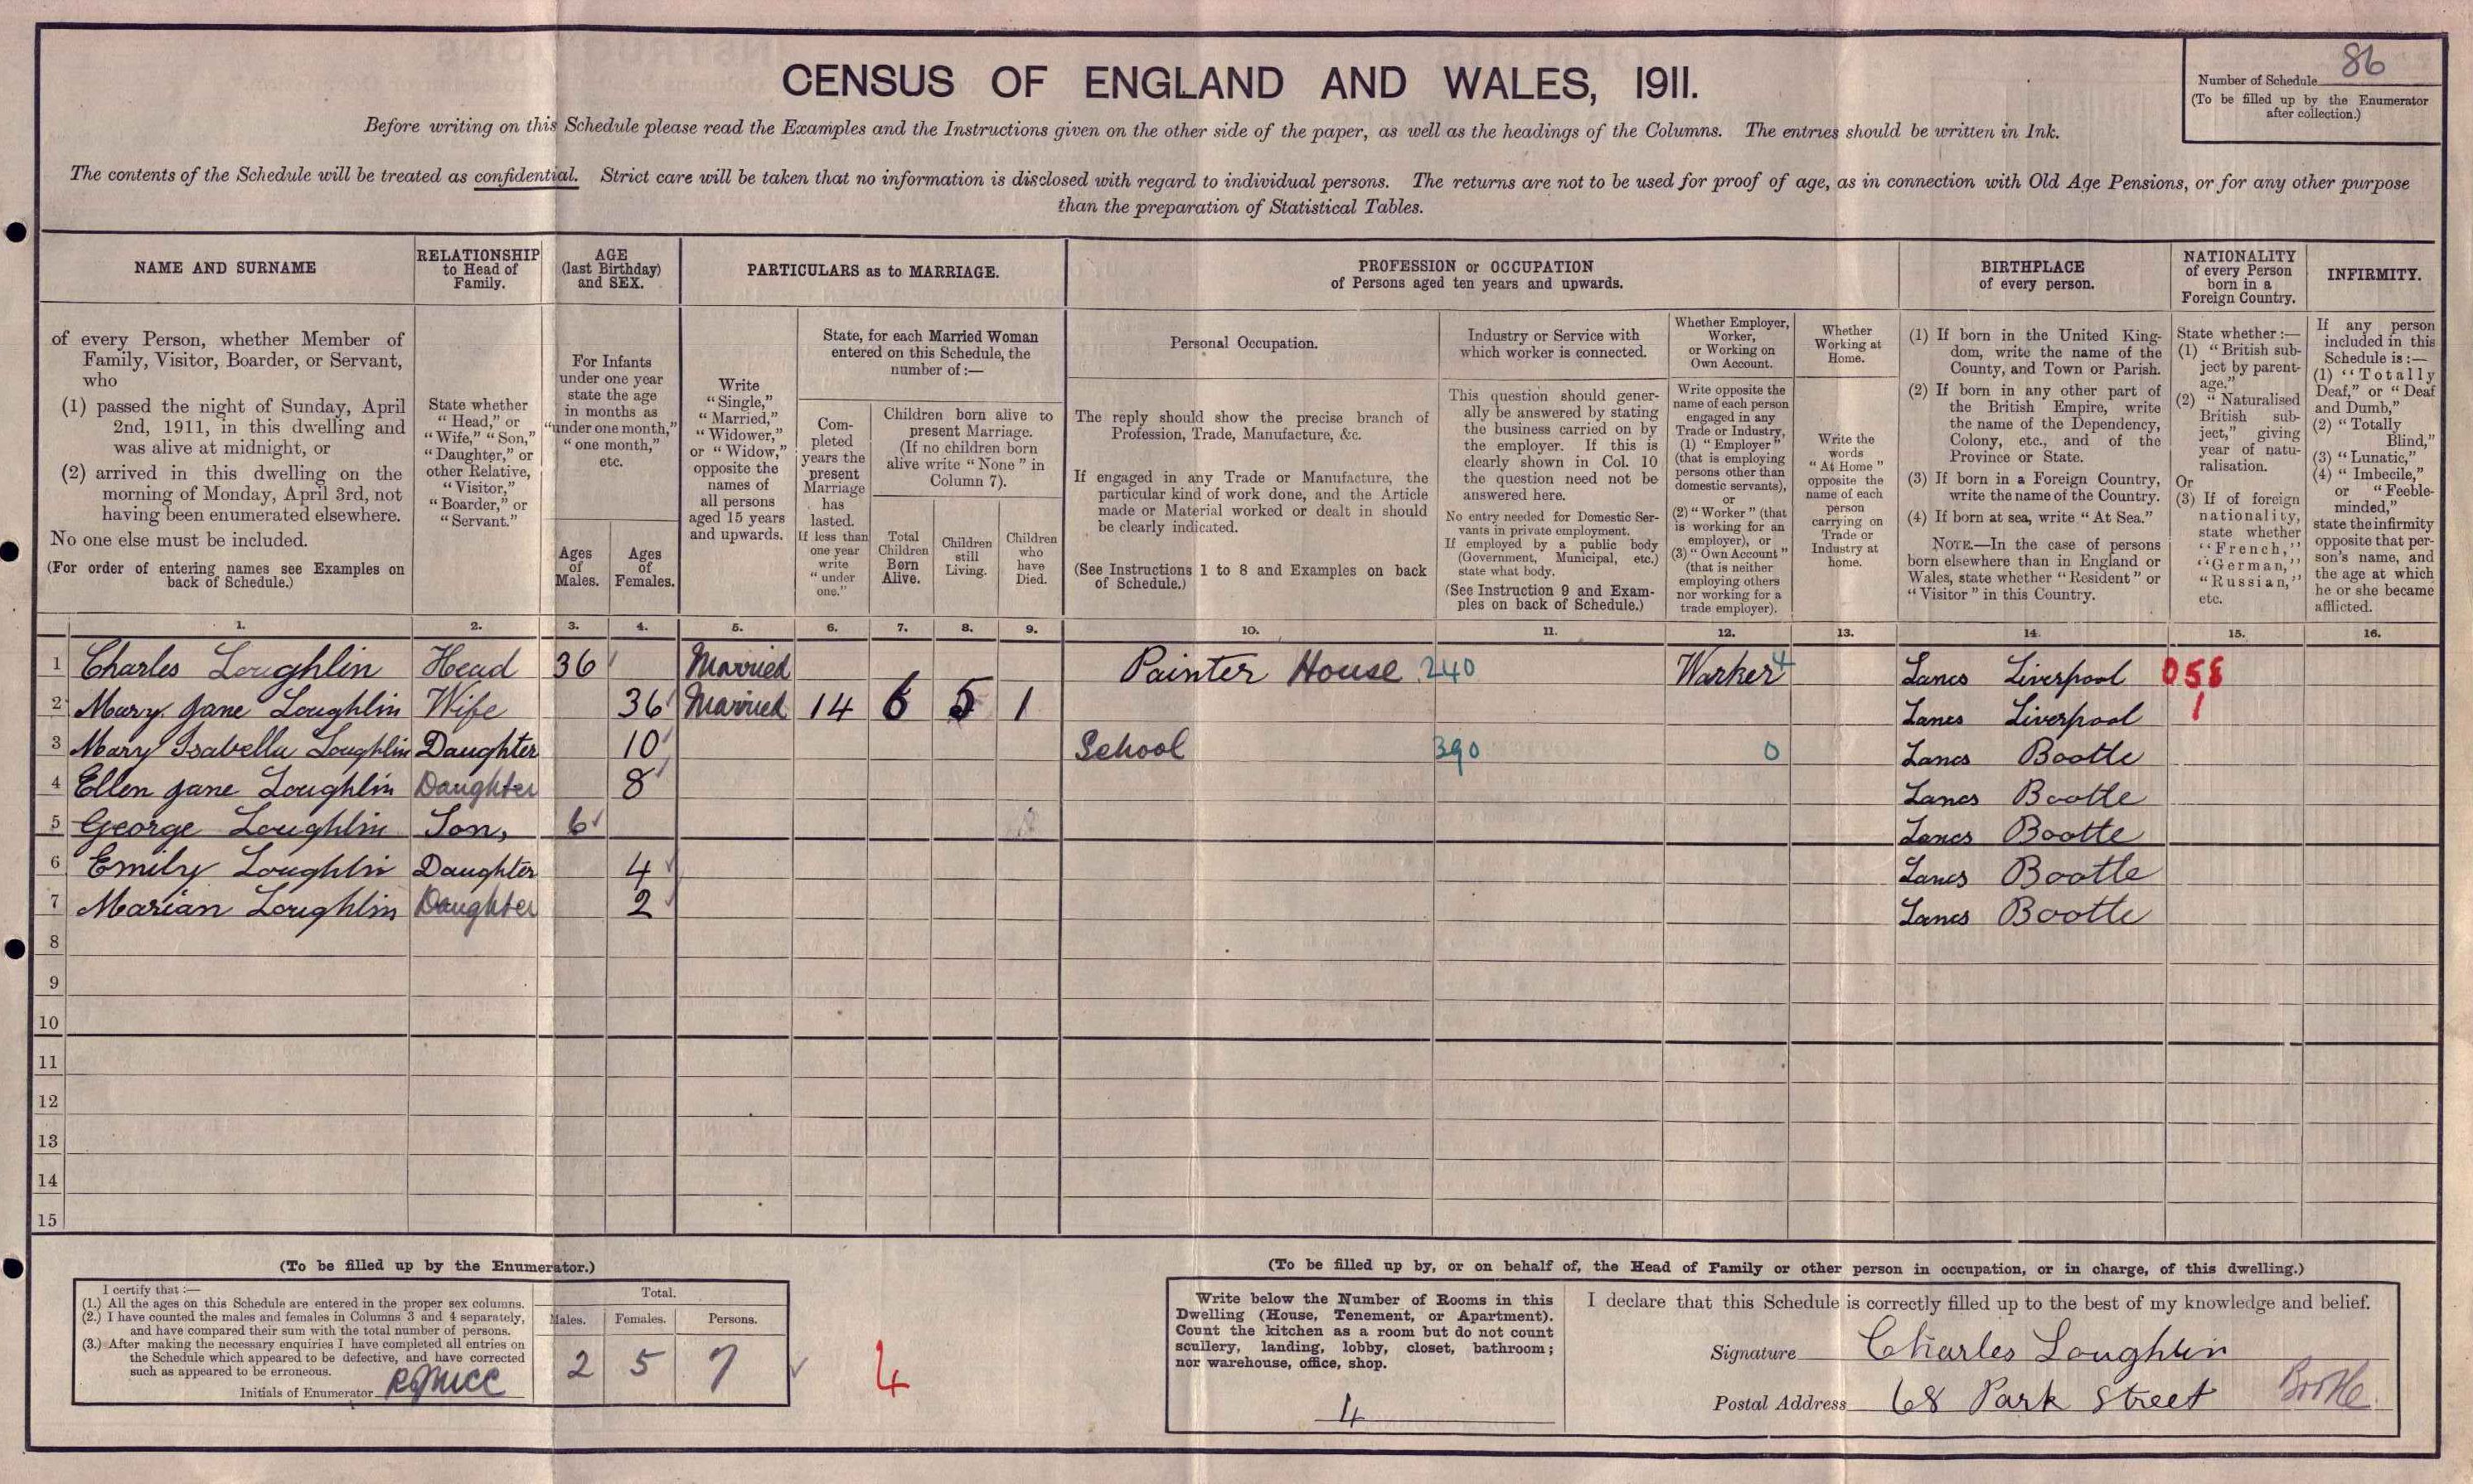 86
Number of Schedule
(To be filled up by the Enumerator
after collection.)
CENSUS OF ENGLAND AND WALES, 1911.
Before writing on this Schedule please read the Examples and the Instructions given on the other side of the paper, as well as the headings of the Columns. The entries should be written in Ink.
The contents of the Schedule will be treated as confidential. Strict care will be taken that no information is disclosed with regard to individual persons. The returns are not to be used for proof of age, as in connection with Old Age Pensions, or for any other purpose
than the preparation of Statistical Tables.
NAME AND SURNAME
of every Person, whether Member of
Family, Visitor, Boarder, or Servant,
who
(1) passed the night of Sunday, April
2nd, 1911, in this dwelling and
was alive at midnight, or
(2) arrived in this dwelling on the
morning of Monday, April 3rd, not
having been enumerated elsewhere.
No one else must be included.
(For order of entering names see Examples on
back of Schedule.)
RELATIONSHIP
to Head of
Family.
State whether
"Head," or
"Wife," "Son,"
"Daughter," or
other Relative,
"Visitor,"
"Boarder," or
"Servant."
AGE
(last Birthday)
and SEX.
For Infants
under one year
state the age
in months as
"under one month,"
"one month,"
etc.
Ages
of
Males.
Ages
of
Females.
PARTICULARS as to MARRIAGE.
Write
"Single,"
"Married,"
"Widower,"
or "Widow,"
opposite the
names of
all persons
aged 15 years
and upwards.
State, for each Married Woman
entered on this Schedule, the
number of:—
Com-
pleted
years the
present
Marriage
has
lasted.
If less than
one year
write
"under
one."
Children born alive to
present Marriage.
(If no children born
alive write "None" in
Column 7).
Total
Children
Born
Alive.
Children
still
Living.
Children
who
have
Died.
PROFESSION or OCCUPATION
of Persons aged ten years and upwards.
Personal Occupation.
The reply should show the precise branch of
Profession, Trade, Manufacture, &c.
If engaged in any Trade or Manufacture, the
particular kind of work done, and the Article
made or Material worked or dealt in should
be clearly indicated.
(See Instructions 1 to 8 and Examples on back
of Schedule.)
Industry or Service with
which worker is connected.
This question should gener-
ally be answered by stating
the business carried on by
the employer. If this is
clearly shown in Col. 10
the question need not be
answered here.
No entry needed for Domestic Ser-
vants in private employment.
If employed by a public body
(Government, Municipal, etc.)
state what body.
(See Instruction 9 and Exam-
ples on back of Schedule.)
Whether Employer,
Worker,
or Working on
Own Account.
Write opposite the
name of each person
engaged in any
Trade or Industry,
(1) "Employer"
(that is employing
persons other than
domestic servants),
or
(2) "Worker" (that
is working for an
employer), or
(3) "Own Account"
(that is neither
employing others
nor working for a
trade employer).
Whether
Working at
Home.
Write the
words
"At Home"
opposite the
name of each
person
carrying on
Trade or
Industry at
home.
BIRTHPLACE
of every person.
(1) If born in the United King-
dom, write the name of the
County, and Town or Parish.
(2) If born in any other part of
the British Empire, write
the name of the Dependency,
Colony, etc., and of the
Province or State.
(3) If born in a Foreign Country,
write the name of the Country.
(4) If born at sea, write "At Sea."
NOTE.—In the case of persons
born elsewhere than in England or
Wales, state whether "Resident" or
"Visitor" in this Country.
NATIONALITY
of every Person
born in a
Foreign Country.
State whether:—
(1) "British sub-
ject by parent-
age."
(2) "Naturalised
British sub-
ject," giving
year of natu-
ralisation.
Or
(3) If of foreign
nationality,
state whether
"French,"
"German,"
"Russian,"
etc.
INFIRMITY.
If any person
included in this
Schedule is:—
(1) "Totally
Deaf," or "Deaf
and Dumb,"
(2) "Totally
Blind,"
(3) "Lunatic,"
(4) "Imbecile,"
or "Feeble-
minded,"
state the infirmity
opposite that per-
son's name, and
the age at which
he or she became
afflicted.
1. 2. 3. 4. 5. 6. 7. 8. 9. 10. 11. 12. 13. 14. 15. 16.
1 Charles Loughlin Head 36 Married Painter House 240 Worker 4 Lancs Liverpool 058
2 Mary Jane Loughlin Wife 36 Married 14 6 5 1 Lancs Liverpool 1
3 Mary Isabella Loughlin Daughter 10 School 390 0 Lancs Bootle
4 Ellen Jane Loughlin Daughter 8 Lancs Bootle
5 George Loughlin Son, 6 Lancs Bootle
6 Emily Loughlin Daughter 4 Lancs Bootle
7 Marian Loughlin Daughter 2 Lancs Bootle
8
9
10
11
12
13
14
15
(To be filled up by the Enumerator.)
I certify that:—
(1.) All the ages on this Schedule are entered in the proper sex columns.
(2.) I have counted the males and females in Columns 3 and 4 separately,
and have compared their sum with the total number of persons.
(3.) After making the necessary enquiries I have completed all entries on
the Schedule which appeared to be defective, and have corrected
such as appeared to be erroneous.
Initials of Enumerator
Total.
Males. Females. Persons.
2 5 7
4
(To be filled up by, or on behalf of, the Head of Family or other person in occupation, or in charge, of this dwelling.)
Write below the Number of Rooms in this
Dwelling (House, Tenement, or Apartment).
Count the kitchen as a room but do not count
scullery, landing, lobby, closet, bathroom;
nor warehouse, office, shop.
4
I declare that this Schedule is correctly filled up to the best of my knowledge and belief.
Signature Charles Loughlin
Postal Address 68 Park Street Bootle